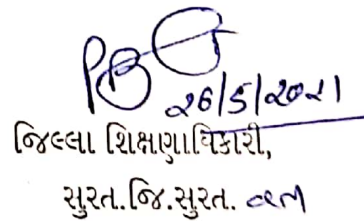 ૨૬/5/૨૦૨૧
જિલ્લા શિક્ષણાધિકારી,
સુરત.જિ.સુરત. વતી